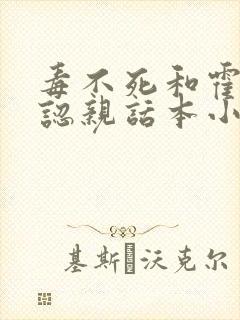 毒不死和霍
認親話本小
基斯·沃克尔